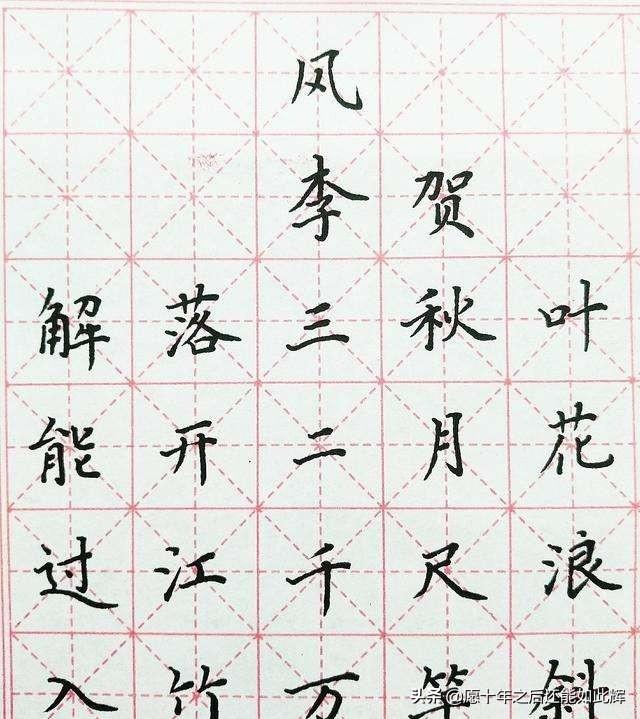 风
李贺
解落三秋叶
能开二月花
过江千尺浪
入竹万竿斜
头条 @愿十年之后还能如此辉